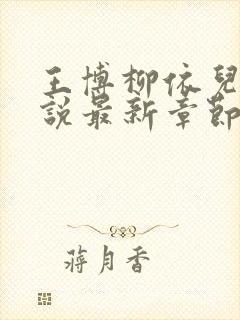 王博柳依兒
說最新章節
蔣月香